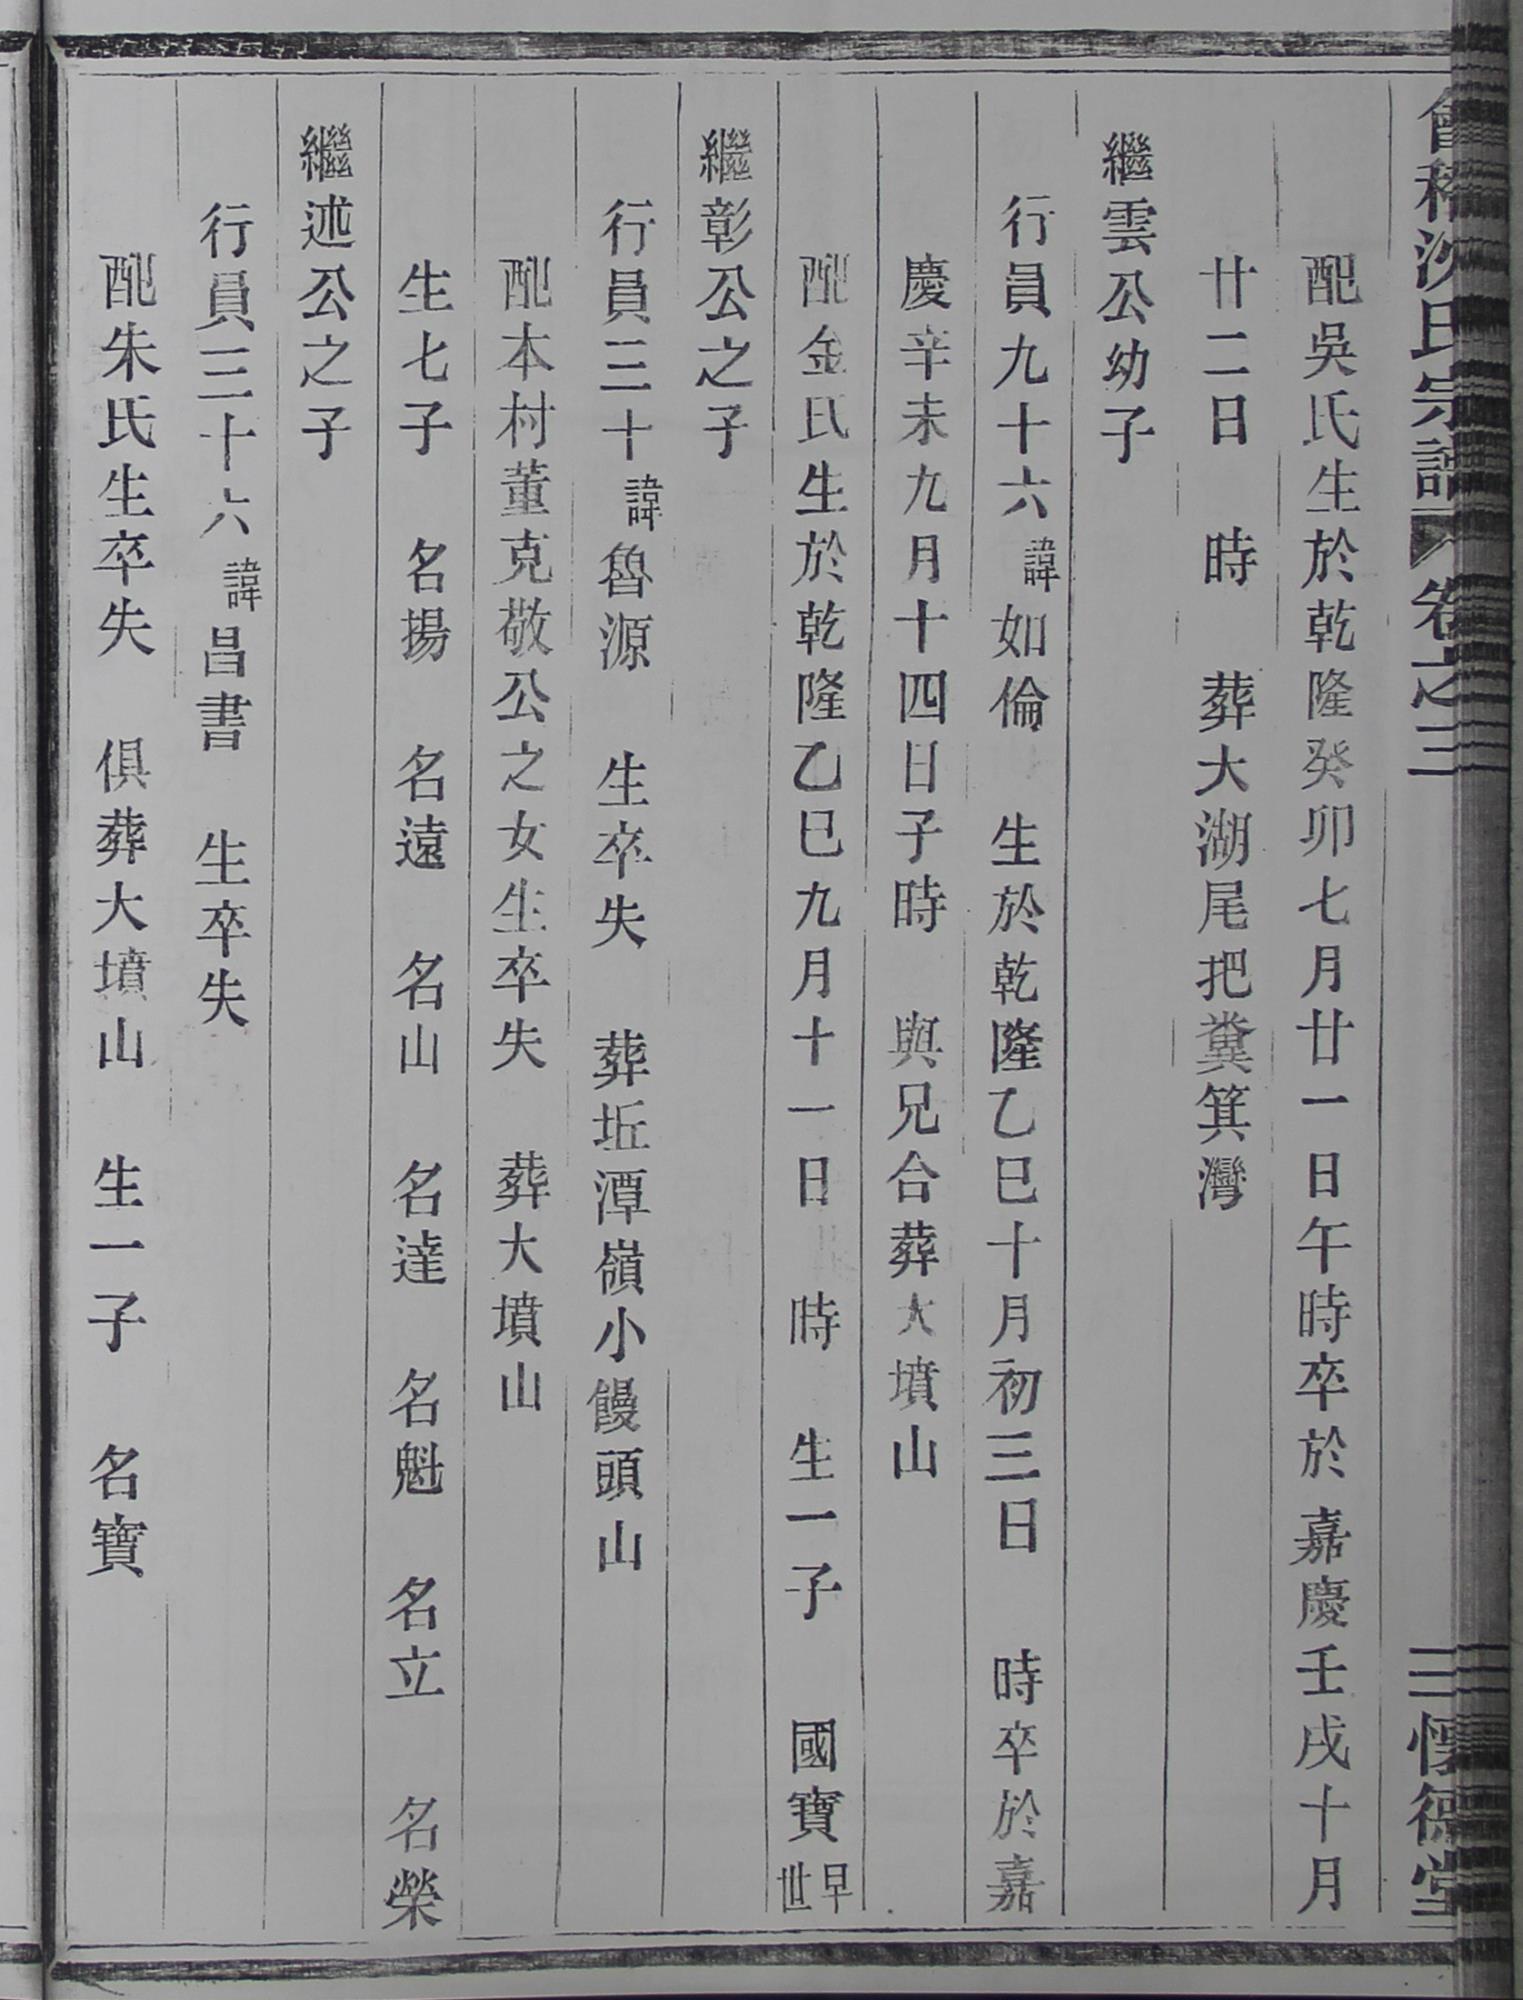 會稽沈氏宗譜 卷之三 三 懷德堂
配吳氏生於乾隆癸卯七月廿一日午時卒於嘉慶壬戌十月
廿二日 時 葬大湖尾把糞箕灣
繼雲公幼子
行員九十六諱如倫 生於乾隆乙巳十月初三日 時卒於嘉
慶辛未九月十四日子時 與兄合葬大墳山
配金氏生於乾隆乙巳九月十一日 時 生一子 國寶早世
繼彰公之子
行員三十諱魯源 生卒失 葬坵潭嶺小饅頭山
配本村董克敬公之女生卒失 葬大墳山
生七子 名揚 名遠 名山 名達 名魁 名立 名榮
繼述公之子
行員三十六諱昌書 生卒失
配朱氏生卒失 俱葬大墳山 生一子 名寶